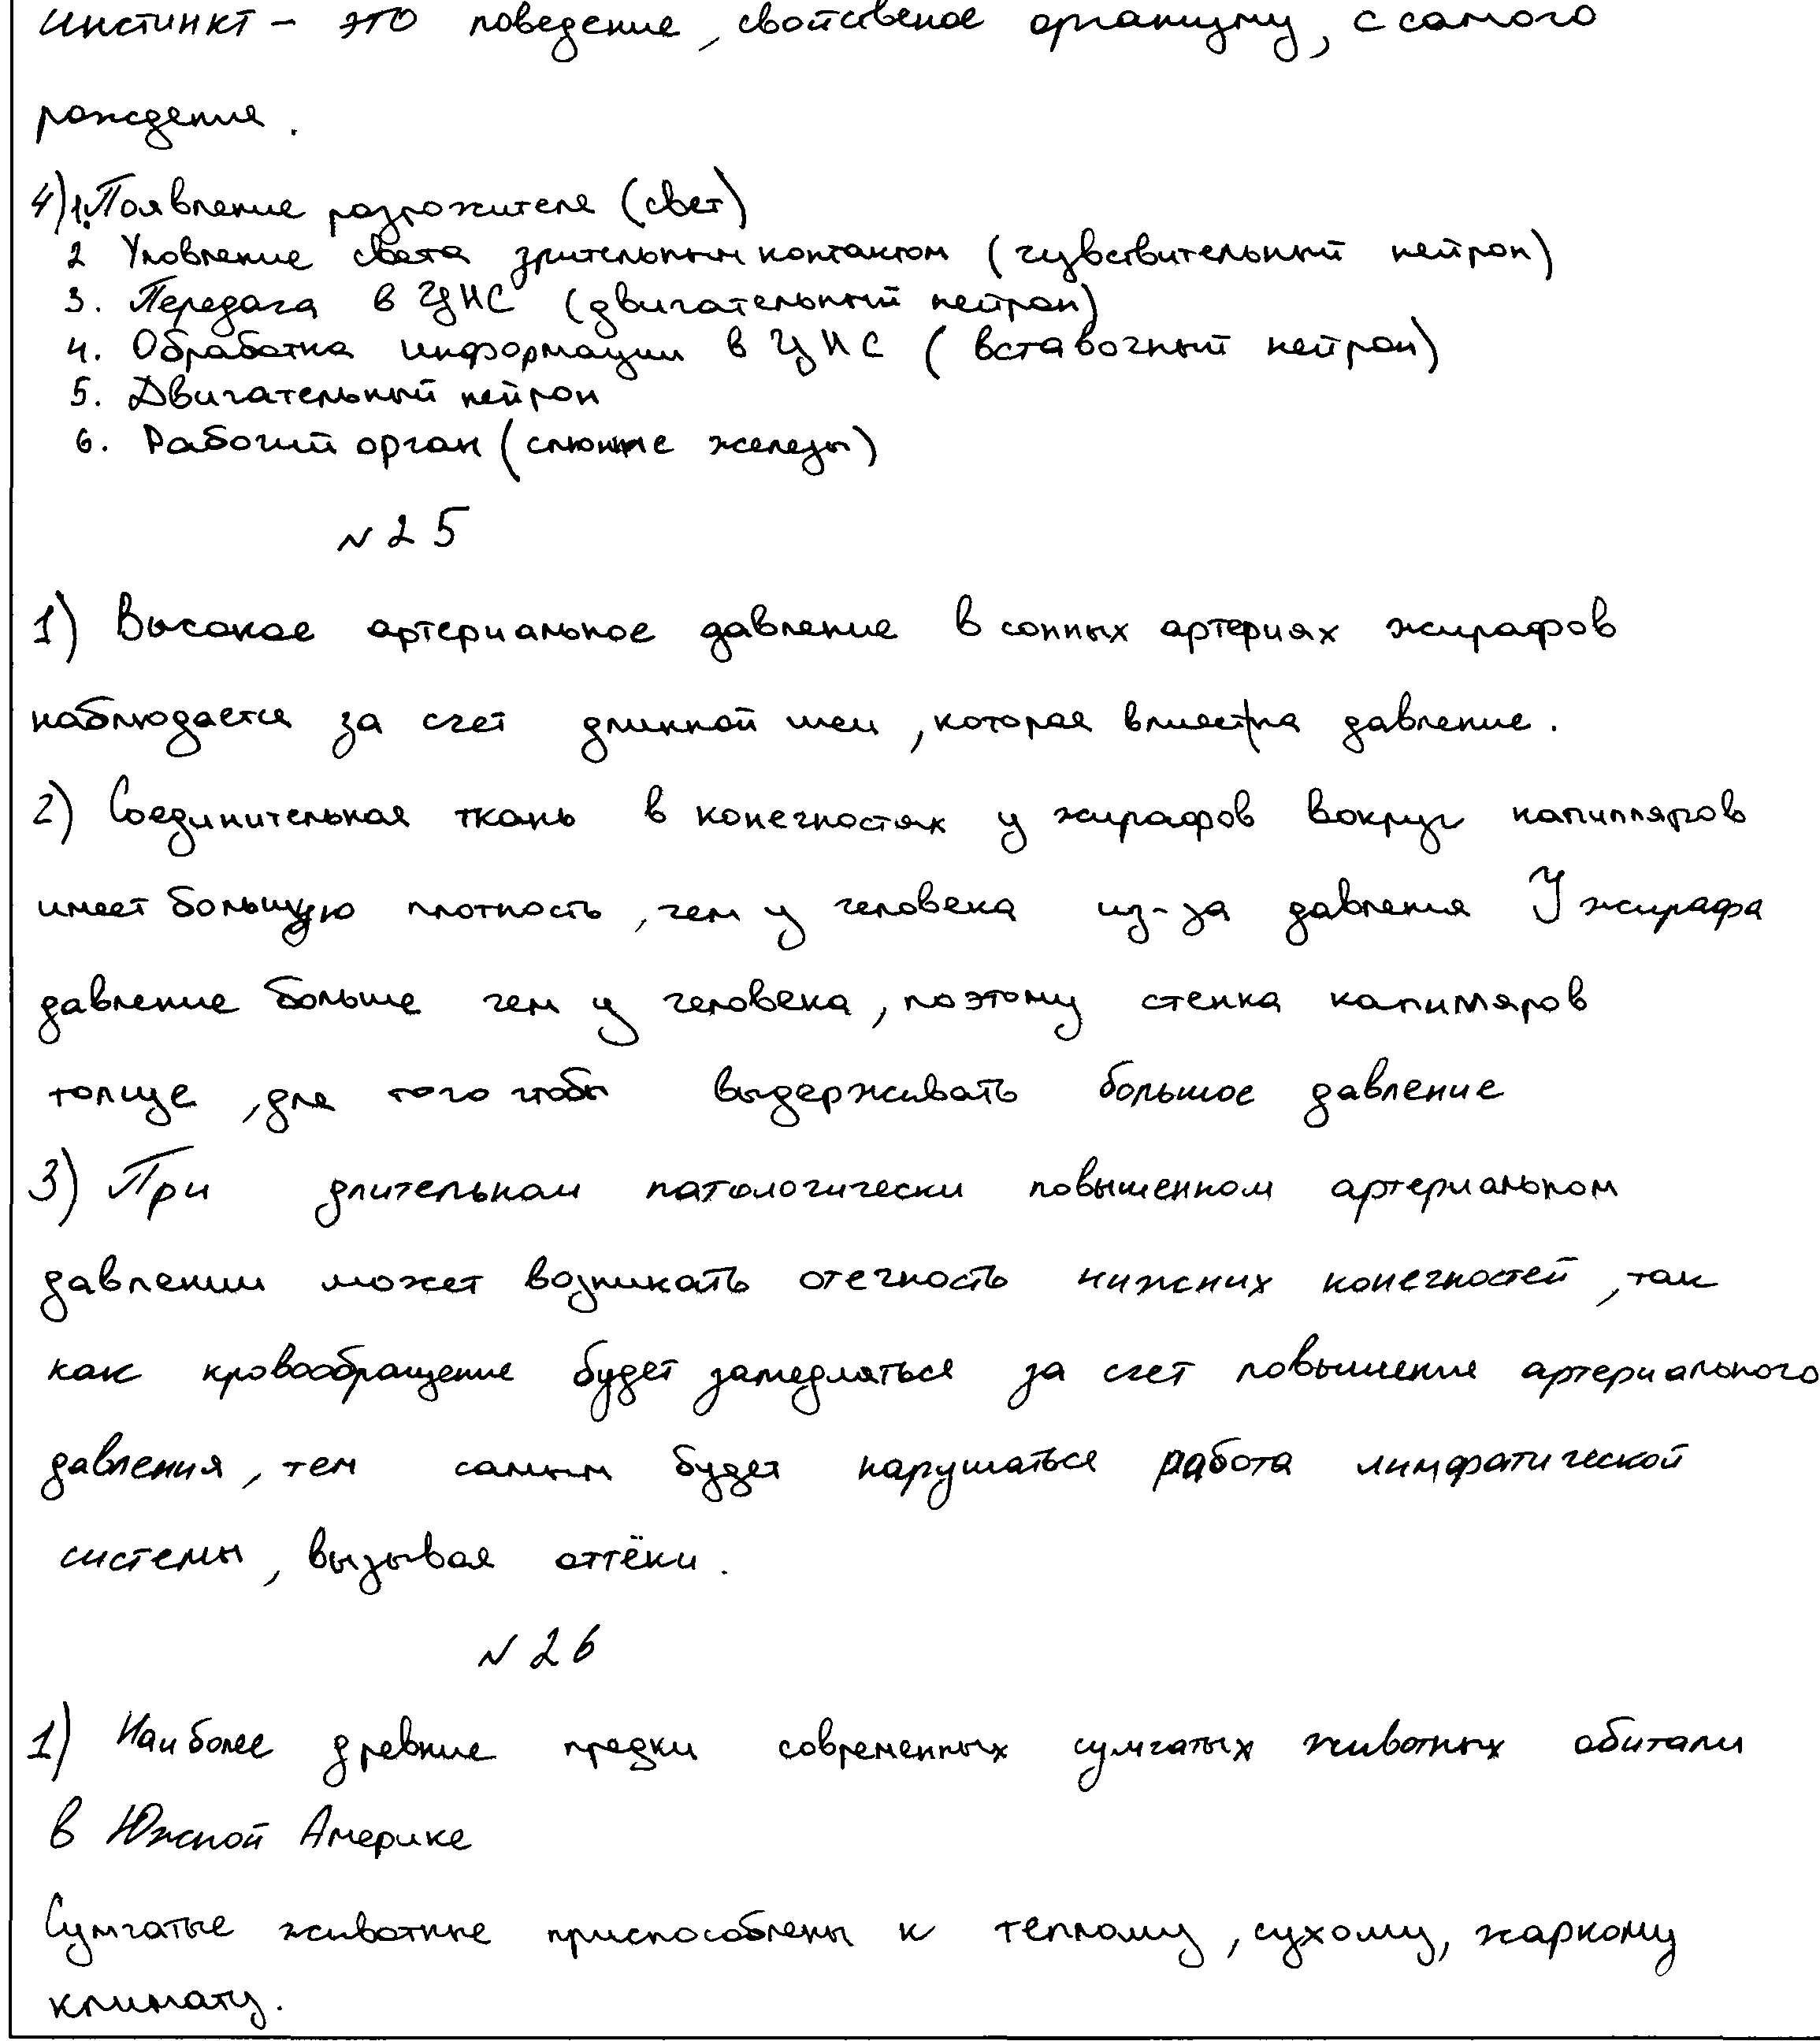 инстинкт – это поведение, свойственое организму, с самого
рождения.
4) 1. Появление розрожителя (свет)
2 Уловление света зрительным контактом (чувствительный нейрон)
3. Передача в ЦНС (двигательный нейрон)
4. Обработка информации в ЦНС (вставочный нейрон)
5. Двигательный нейрон
6. Рабочий орган (слюнные железы)
№ 25
1) Высокое артериальное давление в сонных артериях жирафов
наблюдается за счет длинной шеи, которая влияет на давление.
2) Соединительная ткань в конечностях у жирафов вокруг капилляров
имеет большую плотность, чем у человека из-за давления У жирафа
давление больше чем у человека, поэтому стенка капилляров
толще, для того чтобы выдерживать большое давление
3) При длительном патологически повышенном артериальном
давлении может возникать отечность нижних конечностей, так
как кровообращение будет замедляться за счет повышения артериального
давления, тем самым будет нарушаться работа лимфатической
системы, вызывая оттёки.
№ 26
1) Наиболее древние предки современных сумчатых животных обитали
в Южной Америке
Сумчатые животные приспособлены к теплому, сухому, жаркому
климату.